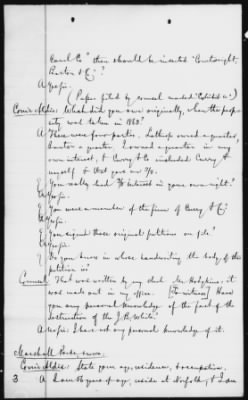 Canal Co" there should be inserted "Courtwright,
Barton & Co"?
A Yes sir.
(Paper filed by counsel marked "Exhibit A".)
Com'r Aldis: What did you own originally, when the prop-
erty was taken in 1862?
A There were four parties. Lathrop owned a quarter,
Barton a quarter. I owned a quarter in my
own interest, & Curry & Co included Curry &
myself &
Q You really had 3/8 interest in your own right?
A Yes sir.
Q You were a member of the firm of Curry & Co?
A Yes sir.
Q You signed those original petitions on file?
A Yes sir.
Q Do you know in whose handwriting the body of the
petition is?
Counsel: That was written by my clerk Mr. Hodgkins; it
was made out in my office. [To witness] Have
you any personal knowledge of the fact of the
destruction of the J. B. White?
A No sir: I have not any personal knowledge of it.
Marshall Parks, sworn.
Com'r Aldis: State your age, residence, & occupation.
3 A I am years of age, reside at Norfolk, & I am